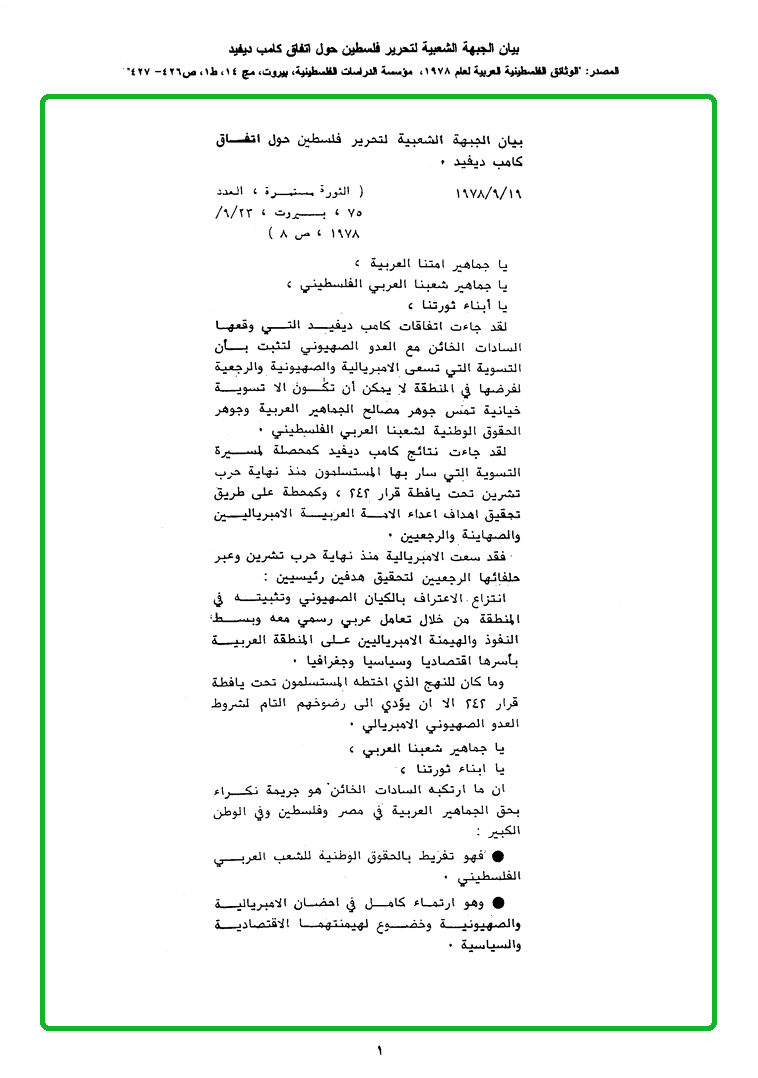 بيان الجبهة الشعبية لتحرير فلسطين حول اتفاق كامب ديفيد
المصدر: "الوثائق الفلسطينية العربية لعام ١٩٧٨، مؤسسة الدراسات الفلسطينية، بيروت، مج ١٤، ط١، ص٤٢٦- ٤٢٧"
بيان الجبهة الشعبية لتحرير فلسطين حول اتفاق
كامب ديفيد .
١٩٧٨/٩/١٩
( الثورة مستمرة ، العدد
٧٥ ، بيروت ، ٩/٢٣/
١٩٧٨ ، ص ٨ )
يا جماهير امتنا العربية ،
يا جماهير شعبنا العربي الفلسطيني ،
يا أبناء ثورتنا ،
لقد جاءت اتفاقات كامب ديفيد التي وقعها
السادات الخائن مع العدو الصهيوني لتثبت بأن
التسوية التي تسعى الامبريالية والصهيونية والرجعية
لفرضها في المنطقة لا يمكن أن تكون الا تسوية
خيانية تمس جوهر مصالح الجماهير العربية وجوهر
الحقوق الوطنية لشعبنا العربي الفلسطيني .
لقد جاءت نتائج كامب ديفيد كمحصلة لمسيرة
التسوية التي سار بها المستسلمون منذ نهاية حرب
تشرين تحت يافطة قرار ٢٤٢ ، وكمحطة على طريق
تحقيق اهداف اعداء الامة العربية الامبرياليين
والصهاينة والرجعيين .
فقد سعت الامبريالية منذ نهاية حرب تشرين وعبر
حلفائها الرجعيين لتحقيق هدفين رئيسيين :
انتزاع الاعتراف بالكيان الصهيوني وتثبيته في
المنطقة من خلال تعامل عربي رسمي معه وبسط
النفوذ والهيمنة الامبرياليين على المنطقة العربية
بأسرها اقتصاديا وسياسيا وجغرافيا .
وما كان للنهج الذي اختطه المستسلمون تحت يافطة
قرار ٢٤٢ الا ان يؤدي الى رضوخهم التام لشروط
العدو الصهيوني الامبريالي .
يا جماهير شعبنا العربي ،
يا ابناء ثورتنا ،
ان ما ارتكبه السادات الخائن هو جريمة نكراء
بحق الجماهير العربية في مصر وفلسطين وفي الوطن
الكبير :
● فهو تفريط بالحقوق الوطنية للشعب العربي
الفلسطيني .
● وهو ارتماء كامل في احضان الامبريالية
والصهيونية وخضوع لهيمنتهما الاقتصادية
والسياسية .
١